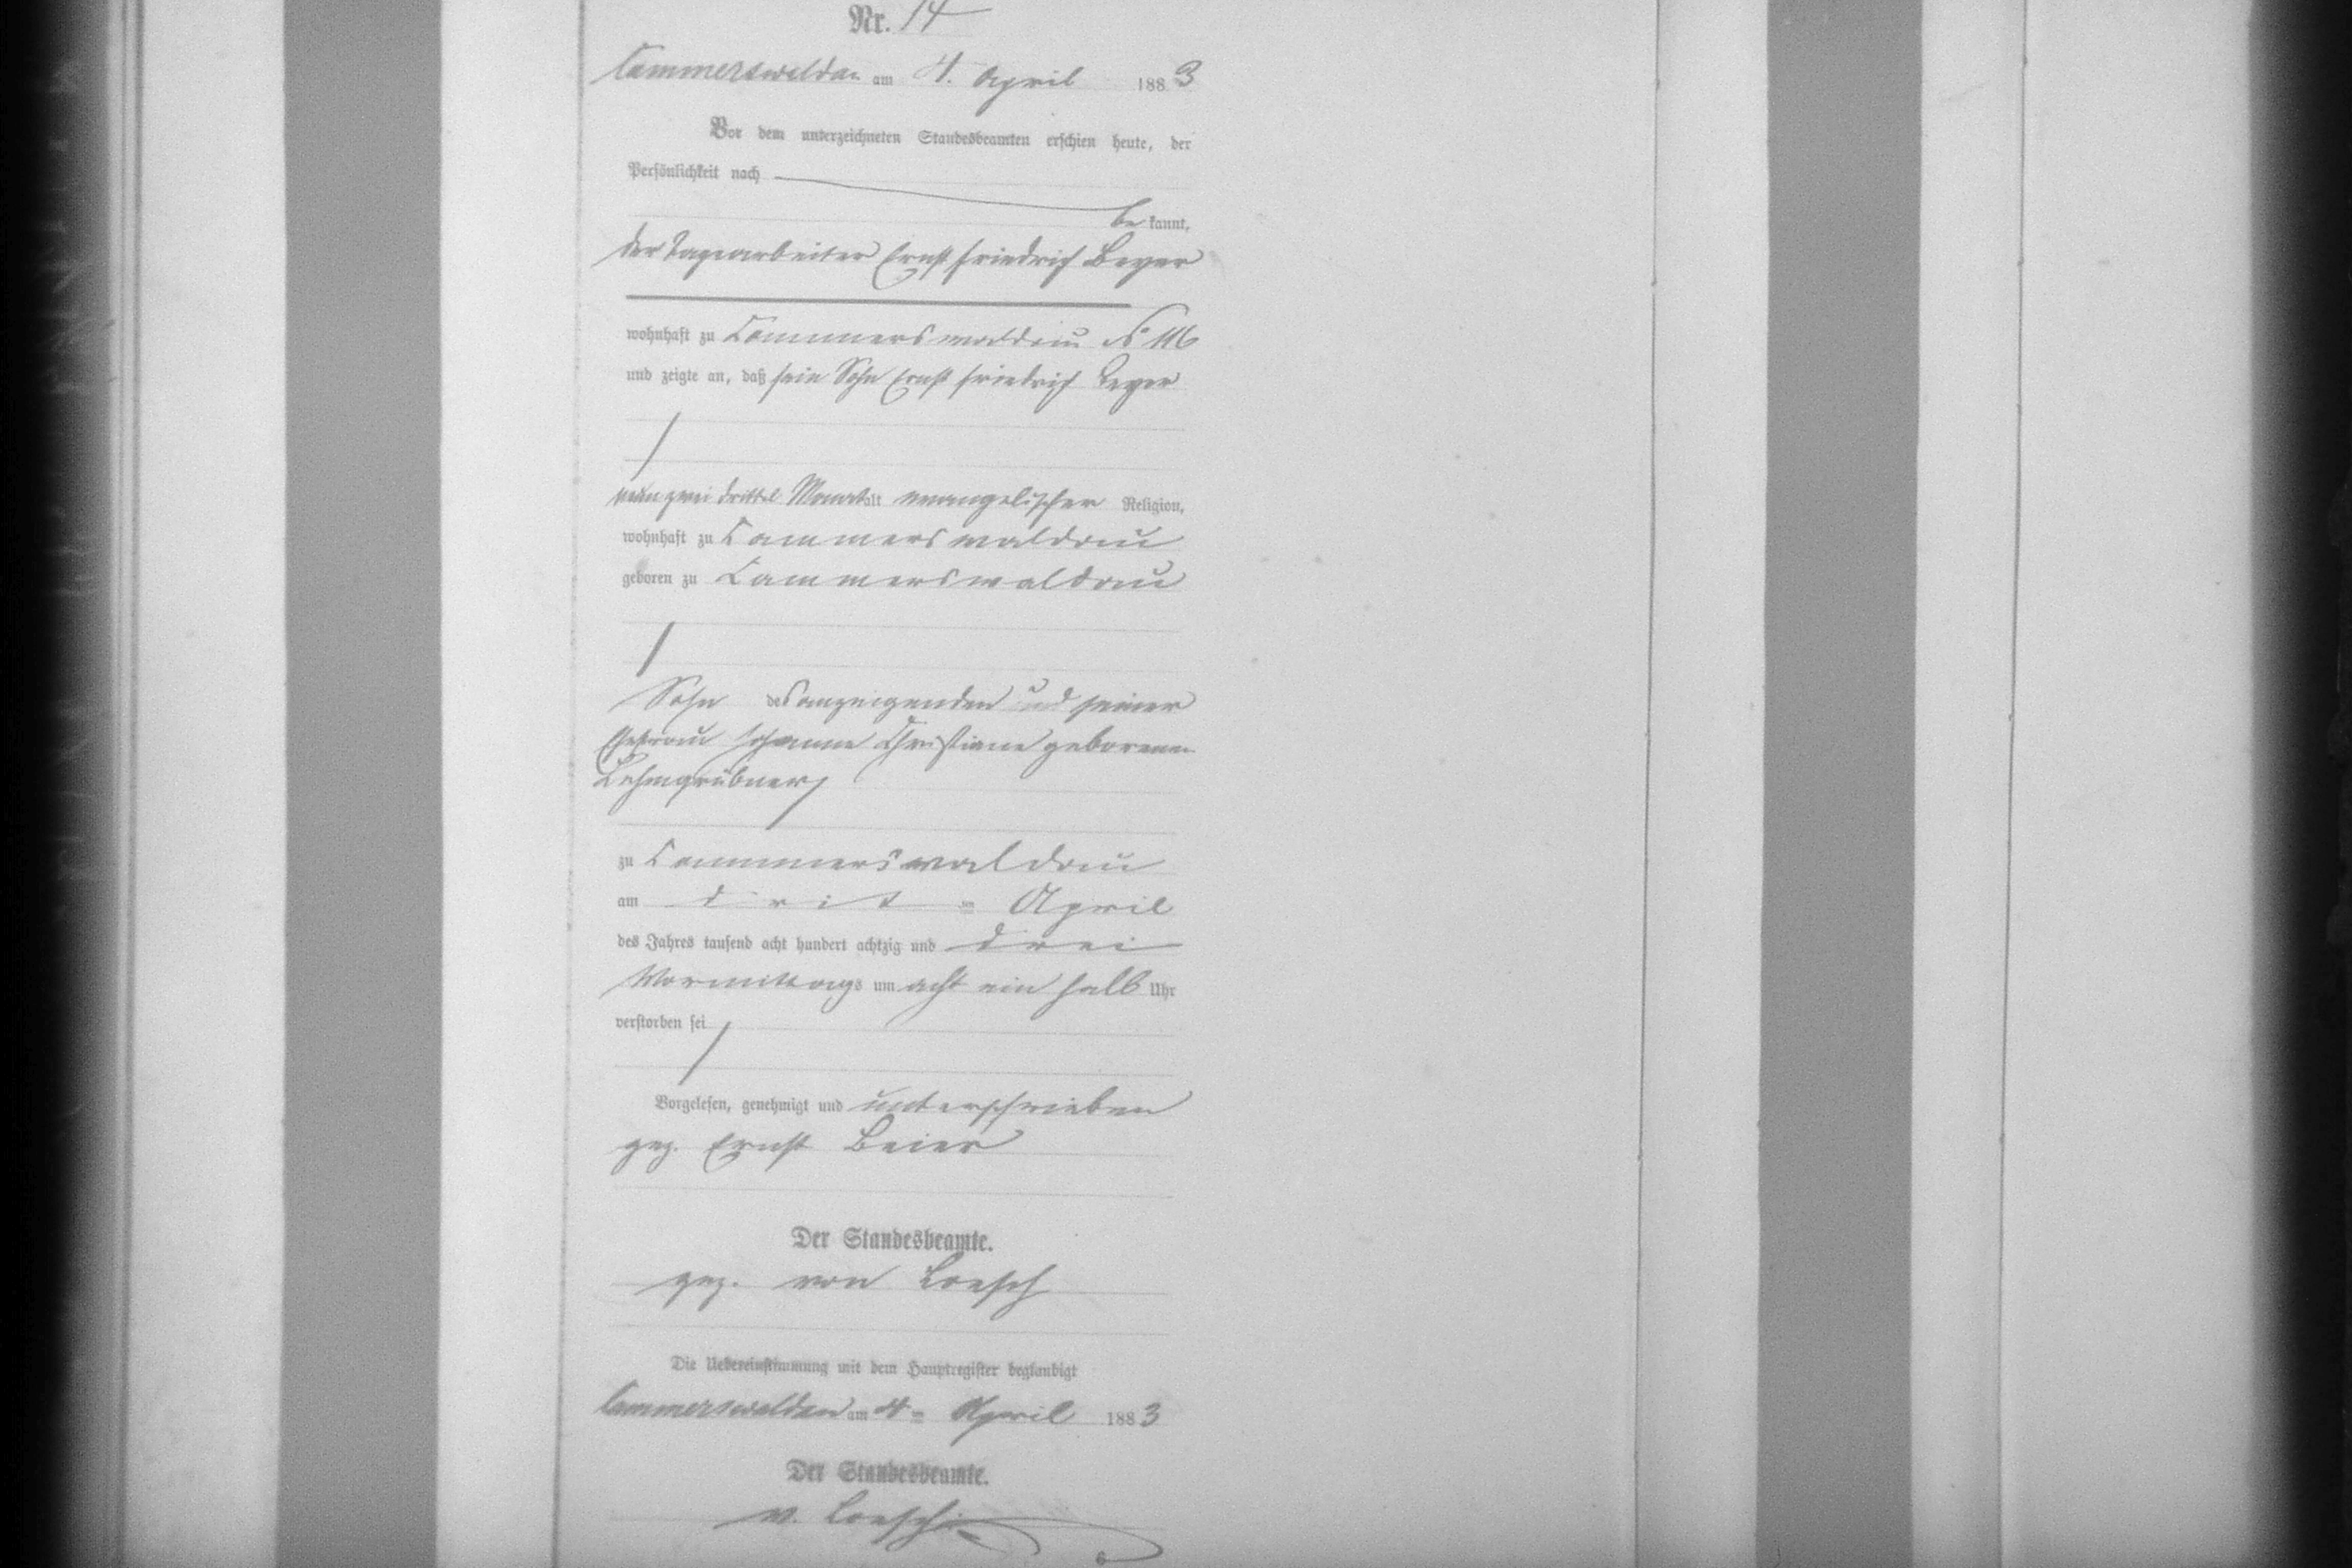 Nr. 14
Cammerswaldau am 4. April 1883
Vor dem unterzeichneten Standesbeamten erschien heute, der
Persönlichkeit nach
be kannt,
der Tagearbeiter Ernst Friedrich Beyer
wohnhaft zu Cammerswaldau No 116
und zeigte an, daß sein Sohn Ernst Friedrich Beyer
neun zwei drittel Monat alt evangelischer Religion,
wohnhaft zu Cammerswaldau
geboren zu Cammerswaldau
Sohn des anzeigenden und seiner
Ehefrau Johanne Christiane geborenen
Lehmgrübner
zu Cammerswaldau
am April
des Jahres tausend acht hundert achtzig und drei
Vormittags um acht ein halb Uhr
verstorben sei
Vorgelesen, genehmigt und unterschrieben
gez. Ernst Beier
Der Standesbeamte.
gez. von Loesch
Die Uebereinstimmung mit dem Hauptregister beglaubigt
Cammerswaldau am 4ten April 1883
Der Standesbeamte.
v. Loesch